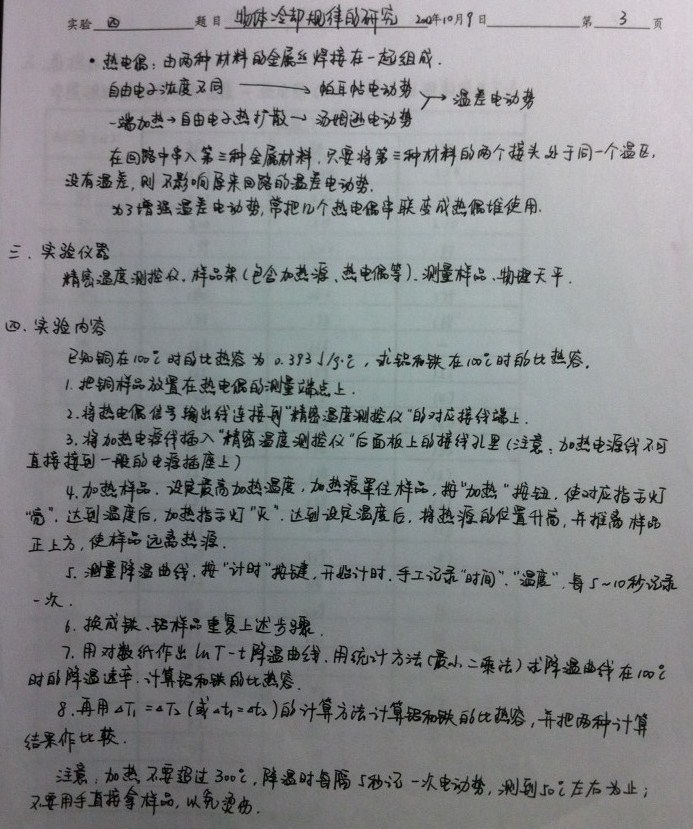 实验 四 题目 物体冷却规律的研究 2012年10月9日 第 3 页
• 热电偶：由两种材料的金属丝焊接在一起组成.
自由电子浓度不同 ——→ 帕耳帖电动势
→ 温差电动势
一端加热→自由电子热扩散→ 汤姆逊电动势
在回路中串入第三种金属材料,只要将第三种材料的两个接头处于同一个温区,
没有温差,则不影响原来回路的温差电动势.
为了增强温差电动势,常把几个热电偶串联变成热偶堆使用.
三、实验仪器
精密温度测控仪、样品架(包含加热源、热电偶等)、测量样品、物理天平.
四.实验内容
已知铜在100℃时的比热容为 0.393J/g·℃, 求铝和铁在100℃时的比热容.
1.把铜样品放置在热电偶的测量端点上.
2.将热电偶信号输出线连接到"精密温度测控仪"的对应接线端上.
3.将加热电源线插入"精密温度测控仪"后面板上的接线孔里(注意:加热电源线不可
直接接到一般的电源插座上)
4.加热样品. 设定最高加热温度,加热源罩住样品,按"加热"按钮,使对应指示灯
"亮".达到温度后,加热指示灯"灭".达到设定温度后,将热源的位置升高,并推离样品
正上方,使样品远离热源.
5.测量降温曲线.按"计时"按键,开始计时.手工记录"时间"."温度".每5~10秒记录
一次.
6.换成铁、铝样品重复上述步骤.
7.用对数纸作出 lnT-t降温曲线.用统计方法(最小二乘法)求降温曲线在100℃
时的降温速率.计算铝和铁的比热容.
8.再用△T₁=△T₂(或△t₁=△t₂)的计算方法计算铝和铁的比热容,并把两种计算
结果作比较.
注意:加热不要超过300℃,降温时每隔5秒记一次电动势,测到50℃左右为止;
不要用手直接拿样品,以免烫伤.